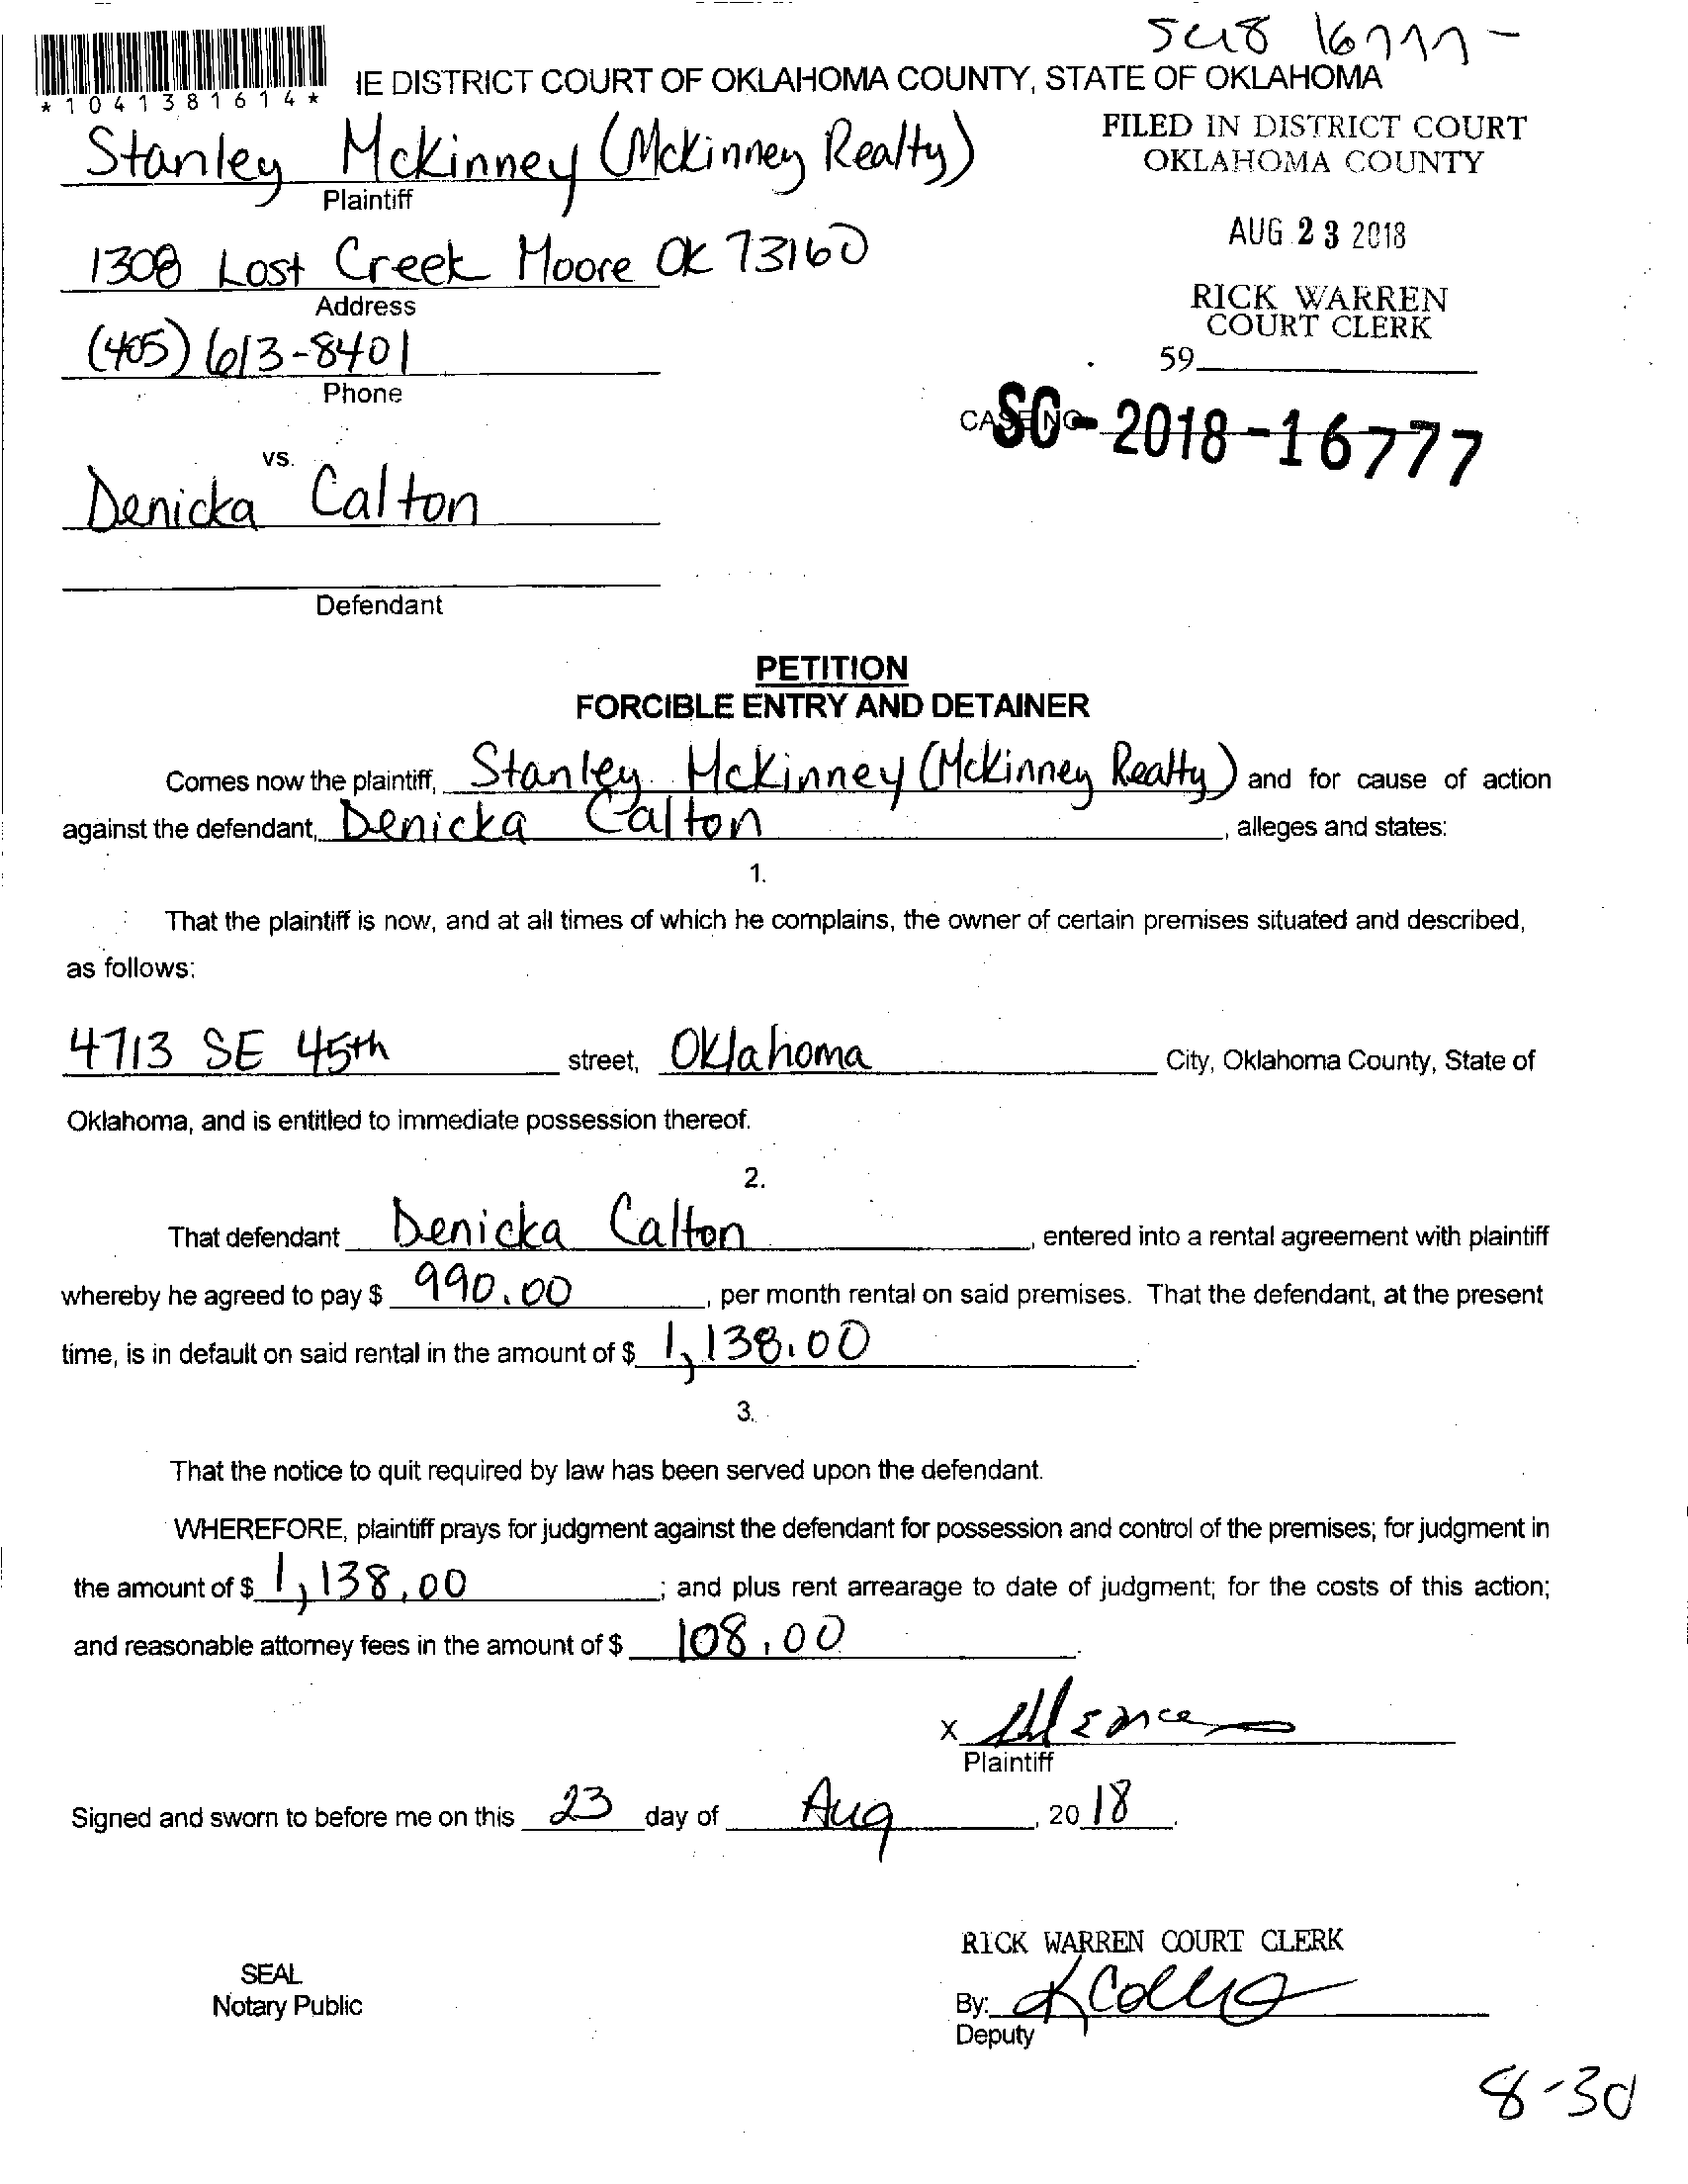 SC18 16777-
*1041381614*
IE DISTRICT COURT OF OKLAHOMA COUNTY, STATE OF OKLAHOMA
FILED IN DISTRICT COURT
OKLAHOMA COUNTY
Stanley Mckinney (Mckinney Realty)
Plaintiff
AUG 23 2018
1308 Lost Creek Moore OK 73160
Address
RICK WARREN
COURT CLERK
(405) 613-8401
59
Phone
CASE NO.
SC-2018-16777
vs.
Denicka Calton
Defendant
PETITION
FORCIBLE ENTRY AND DETAINER
Comes now the plaintiff, Stanley Mckinney (Mckinney Realty) and for cause of action
against the defendant, Denicka Calton, alleges and states:
1.
That the plaintiff is now, and at all times of which he complains, the owner of certain premises situated and described,
as follows:
4713 SE 45th street, Oklahoma City, Oklahoma County, State of
Oklahoma, and is entitled to immediate possession thereof.
2.
That defendant Denicka Calton, entered into a rental agreement with plaintiff
whereby he agreed to pay $ 990.00, per month rental on said premises. That the defendant, at the present
time, is in default on said rental in the amount of $ 1,138.00.
3.
That the notice to quit required by law has been served upon the defendant.
WHEREFORE, plaintiff prays for judgment against the defendant for possession and control of the premises; for judgment in
the amount of $ 1,138.00; and plus rent arrearage to date of judgment; for the costs of this action;
and reasonable attorney fees in the amount of $ 108.00.
X
Plaintiff
Signed and sworn to before me on this 23 day of Aug, 20 18.
RICK WARREN COURT CLERK
SEAL
Notary Public
By:
Deputy
8-30